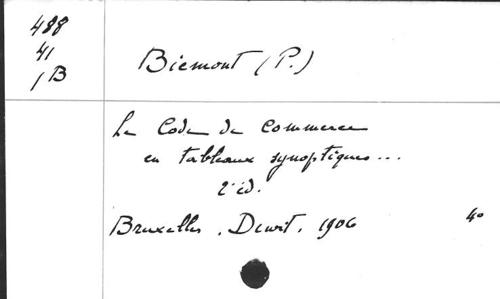 488
41
1B
Biemont (P.)
Le Code de Commerce
en tableaux synoptiques...
2e éd.
Bruxelles, Dewit, 1906 4º